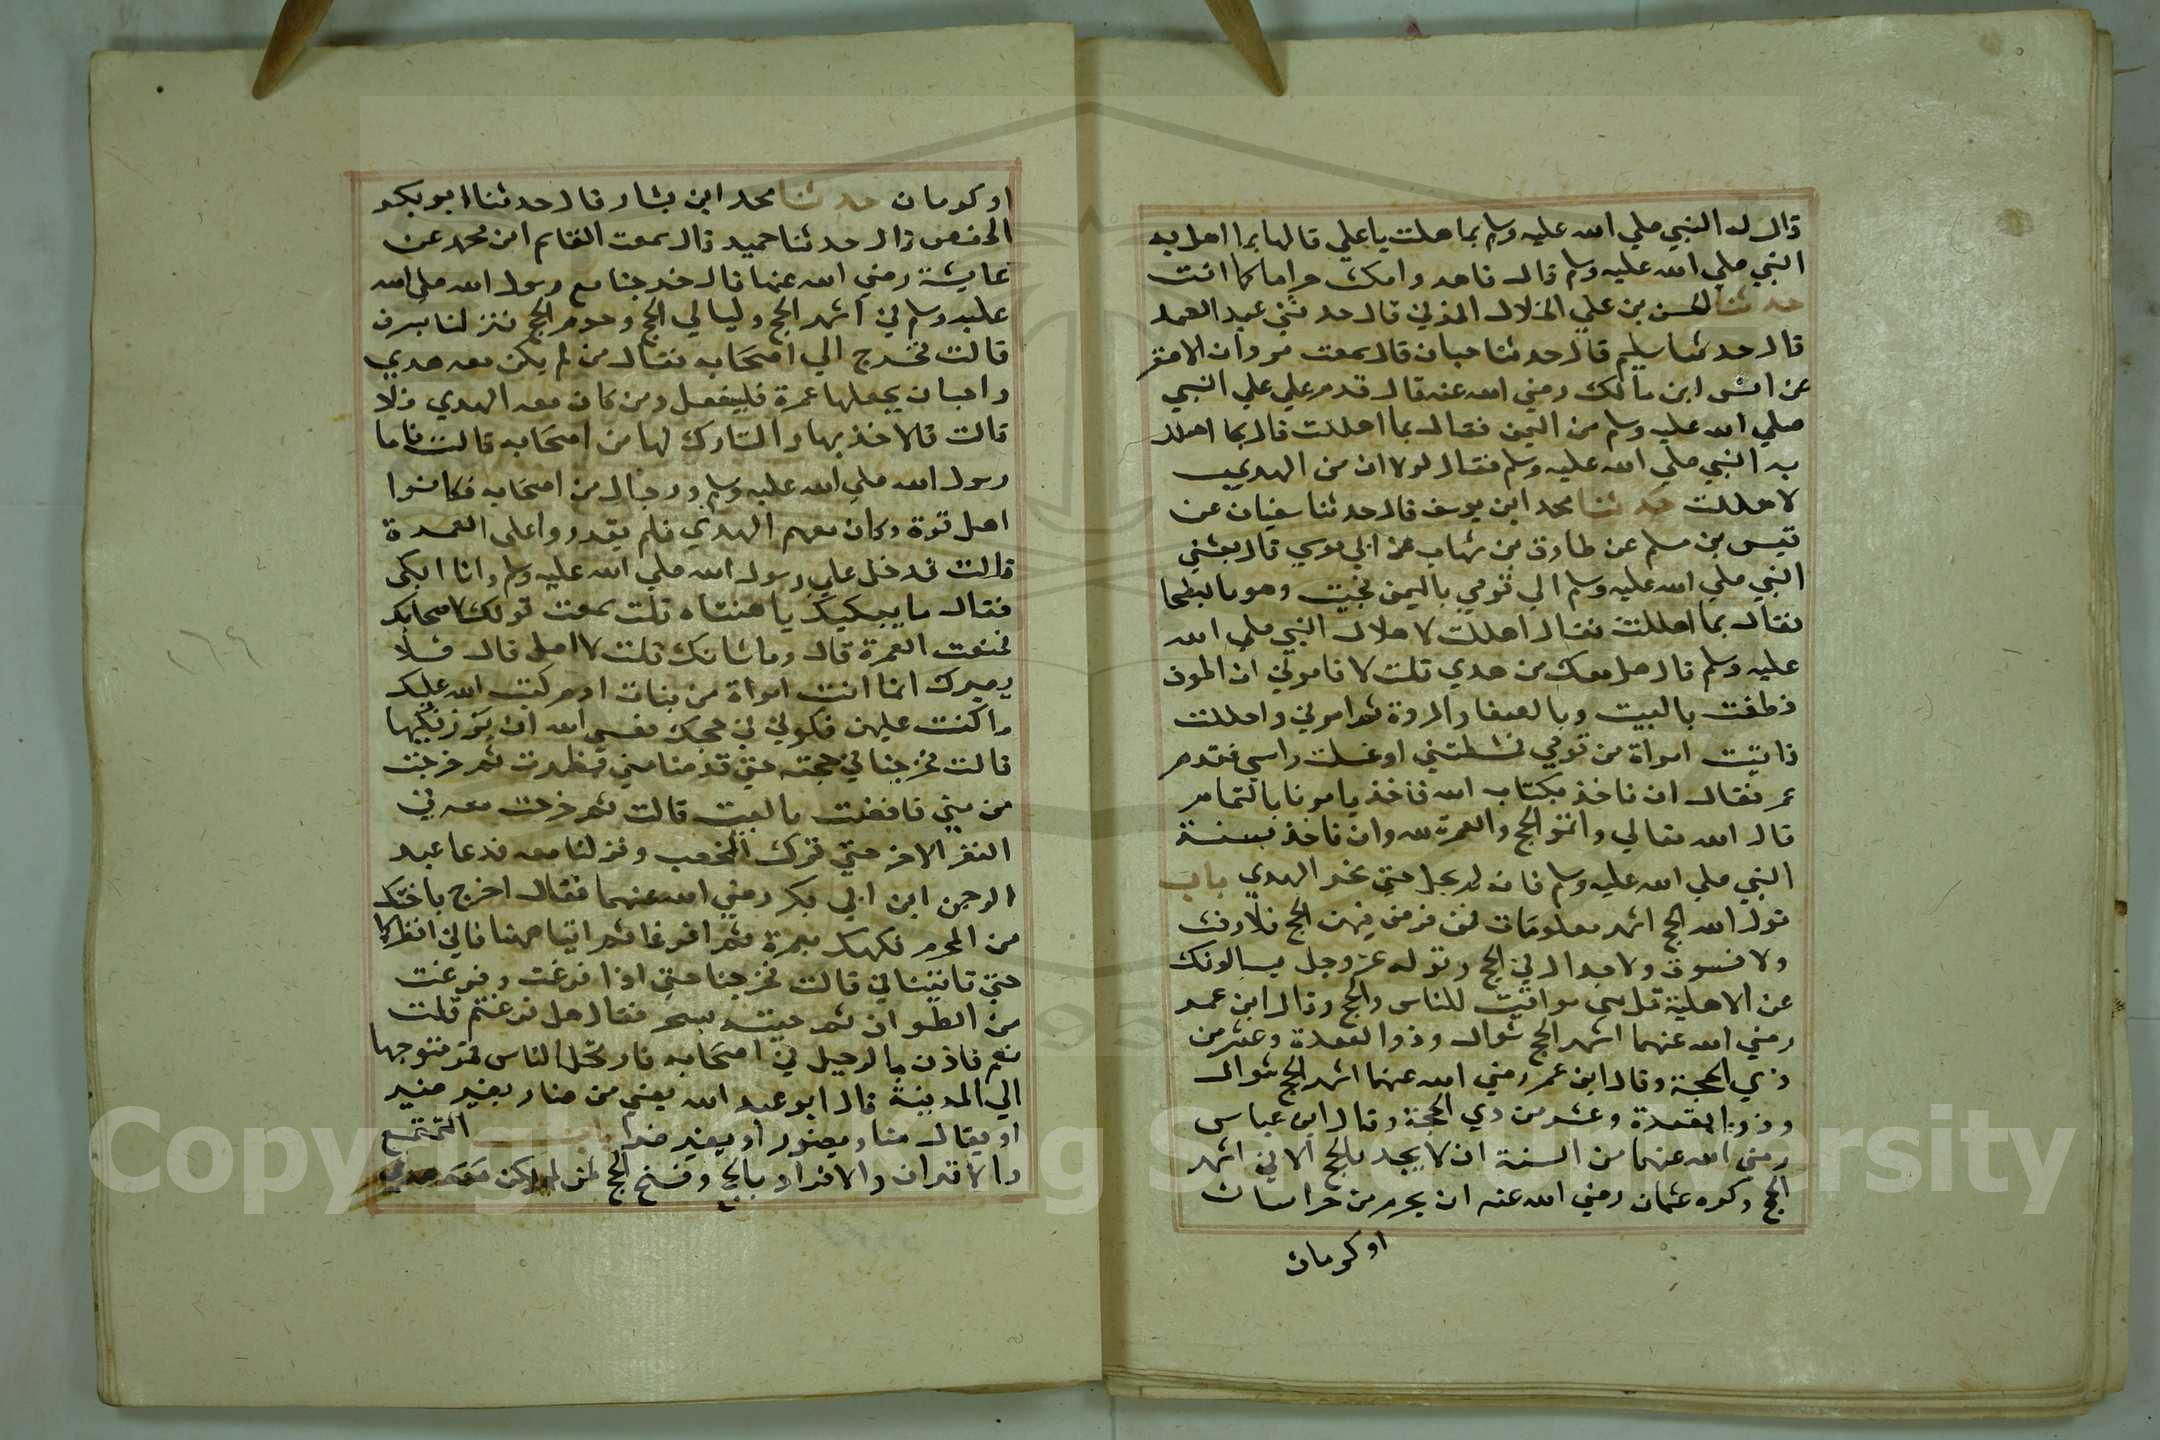 قال له النبي صلي الله عليه وسلم بما هلت يا علي قالها بما اهل به
النبي صلي الله عليه وسلم قال فاهد وامكث حراما كما انت
حدثنا الحسن بن علي الخلال الهذلي قال حدثني عبد الصمد
قال حدثنا سليم قال حدثنا حبان قال سمعت مروان الاصفر
عن انس ابن مالك رضي الله عنه قال قدم علي علي النبي
صلي الله عليه وسلم من اليمن فقال بما اهللت قال بما اهلل
به النبي صلي الله عليه وسلم فقال لولا ان من الهدي
لاهللت حدثنا محمد ابن يوسف قال حدثنا سفيان عن
قيس بن مسلم عن طارق بن شهاب عن ابي موسي قال بعثني
النبي صلي الله عليه وسلم الي قومي باليمن فجيت وهو بالبطحا
فقال بما اهللت فقال اهللت لاهلال النبي صلي الله
عليه وسلم قال هل معك من هدي قلت لا فامرني ان اطوف
فطفت بالبيت وبالصفا والمروة ثم امرني واهللت
فاتيت امراة من قومي فشطتني او غسلت راسي فقدم
عمر فقال ان ناخذ بكتاب الله فاخذ يامرنا بالتمام
قال الله تعالي واتموا الحج والعمرة لله وان ناخذ بسنة
النبي صلي الله عليه وسلم فانه لم يحل حتي نحر الهدي باب
قول الله الحج اشهر معلومات فمن فرض فيهن الحج فلا رفث
ولا فسوق ولا جدال في الحج وقوله عز وجل يسالونك
عن الاهلية قل هي مواقيت للناس والحج وقال ابن عمر
رضي الله عنهما اشهر الحج شوال وذو القعدة وعشر من
ذي الحجة وقال ابن عمر رضي الله عنهما اشهر الحج شوال
وذو القعدة وعشر من ذي الحجة وقال ابن عباس
رضي الله عنهما من السنة ان لا يحد بالحج الا في اشهر
الحج وكره عثمان رضي الله عنه ان يحرم من خراسان
او كرمان
او كرمان حدثنا محمد ابن بشار قال حدثنا ابو بكر
الحنفي قال حدثنا حميد قال سمعت القاسم ابن محمد عن
عايشة رضي الله عنها قال خرجنا مع رسول الله صلي الله
عليه وسلم في اشهر الحج وليالي الحج وحرم الحج فنزلنا بسرف
قالت فخرج الي اصحابه فقال من لم يكن معه هدي
واحب ان يجعلها عمرة فليفعل ومن كان معه الهدي فلا
قالت فالاخذ بها والتارك لها من اصحابه قالت فاما
رسول الله صلي الله عليه وسلم ورجال من اصحابه فكانوا
اهل قوة وكان معهم الهدي فلم يقدروا علي العمرة
قالت فدخل علي رسول الله صلي الله عليه وسلم وانا ابكي
فقال ما يبكيك يا هنتاه قلت سمعت قولك لاصحابك
فمنعت العمرة قال وما شانك قلت لا اصلي قال فلا
يضيرك انما انت امراة من بنات ادم كتب الله عليك
ما كتب عليهن فكوني في حجك فعسي الله ان يرزقكيها
قالت فخرجنا في حجته حتي قدمنا مني فطهرت ثم خرجت
من مني فافضت بالبيت قالت ثم خرجت معه في
النفر الاخر حتي نزل المحصب ونزلنا معه فدعا عبد
الرحمن ابن ابي بكر رضي الله عنهما فقال اخرج باختك
من الحرم فلتهل بعمرة ثم افرغا ثم ائتيا ههنا فاني انظركما
حتي تاتيناني قالت فخرجنا حتي اذا فرغت وفرغت
من الطواف ثم جيته بسحر فقال هل فرغتم قلت
نعم فاذن بالرحيل في اصحابه فارتحل الناس فمر متوجها
الي المدينة قال ابو عبد الله يضير من ضار يضير ضير
او يقال ضار يضور او يضير ضرا باب التمتع
والاقران والافراد بالحج وفسخ الحج لمن لم يكن معه هدي
Copyright © King Saud University